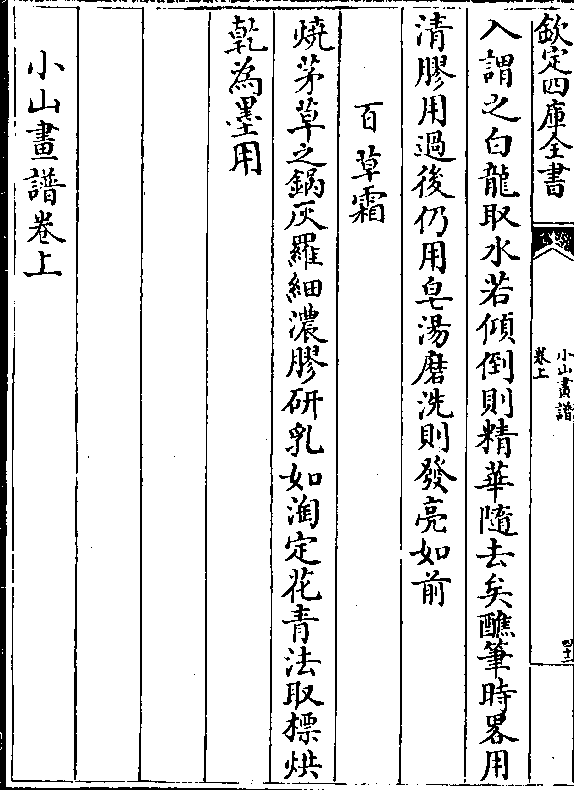 欽定四庫全書
小山畫譜
卷上
四十三
入謂之白龍取水若傾倒則精華隨去矣醮筆時畧用
清膠用過後仍用皂湯磨洗則發亮如前
百草霜
燒茅草之鍋灰羅細濃膠研乳如淘定花青法取標烘
乾為墨用
小山畫譜卷上